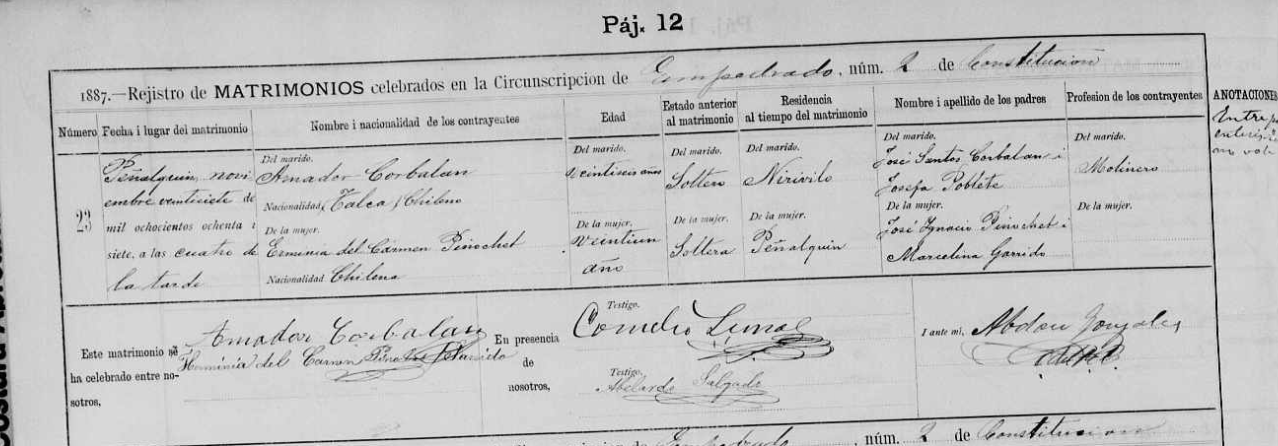 Páj. 12
1887.—Rejistro de MATRIMONIOS celebrados en la Circunscripcion de Empedrado, núm. 2 de Constitucion
Número
Fecha i lugar del matrimonio
Nombre i nacionalidad de los contrayentes
Edad
Estado anterior al matrimonio
Residencia al tiempo del matrimonio
Nombre i apellido de los padres
Profesion de los contrayentes
ANOTACIONES
23
Peñalquin novi
embre veintisiete de
mil ochocientos ochenta i
siete, a las cuatro de
la tarde
Del marido.
Amador Corbalan
Nacionalidad Talca Chileno
De la mujer.
Erminia del Carmen Pinochet
Nacionalidad Chilena
Del marido.
veintiseis años
De la mujer.
veintiun
año
Del marido.
Soltero
De la mujer.
Soltera
Del marido.
Nirivilo
De la mujer.
Peñalquin
Del marido.
José Santos Corbalan i
Josefa Poblete
De la mujer.
José Ignacio Pinochet i
Marcelina Garrido
Del marido.
Molinero
De la mujer.
Este matrimonio se
ha celebrado entre no-
sotros,
Amador Corbalan
Herminia del Carmen Pinochet
En presencia
de
nosotros,
Testigo.
Cornelio
Testigo.
Abelardo Salgado
I ante mí,
Abdon Gonzales
Empedrado, núm. 2 de Constitucion